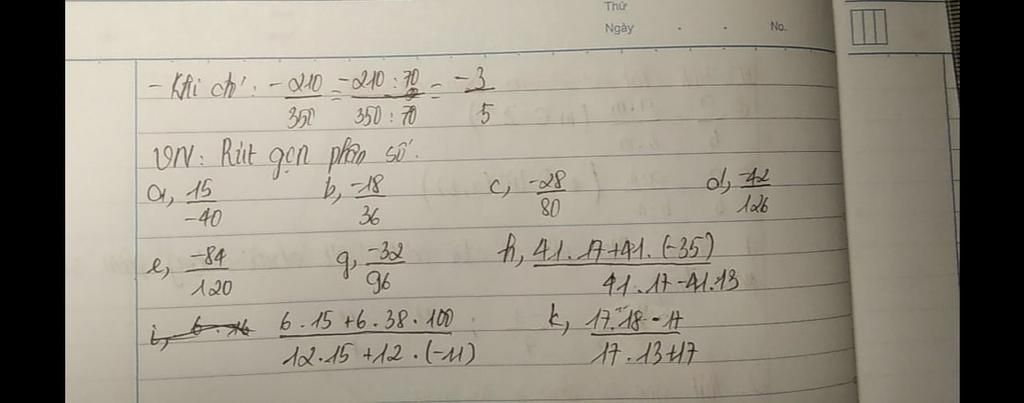 Thứ
Ngày . . No.
- Khi chỉ: -210/350 = -210:70/350:70 = -3/5
VN: Rút gọn phân số.
a, 15/-40 b, -18/36 c, -28/80 d, -42/126
e, -84/120 g, -32/96 h, 41.17+41.(-35)/41.17-41.13
i, 6.16 6.15+6.38.100/12.15+12.(-11) k, 17.18-17/17.13+17